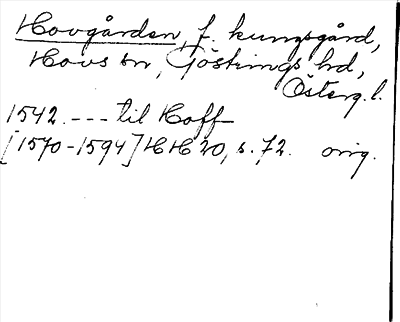 Hovgården, f. kungsgård,
Hovs sn, Göstrings hd,
Österg. l.
1542. --- til Hoff
[1570-1594] HH 20, s. 72. orig.